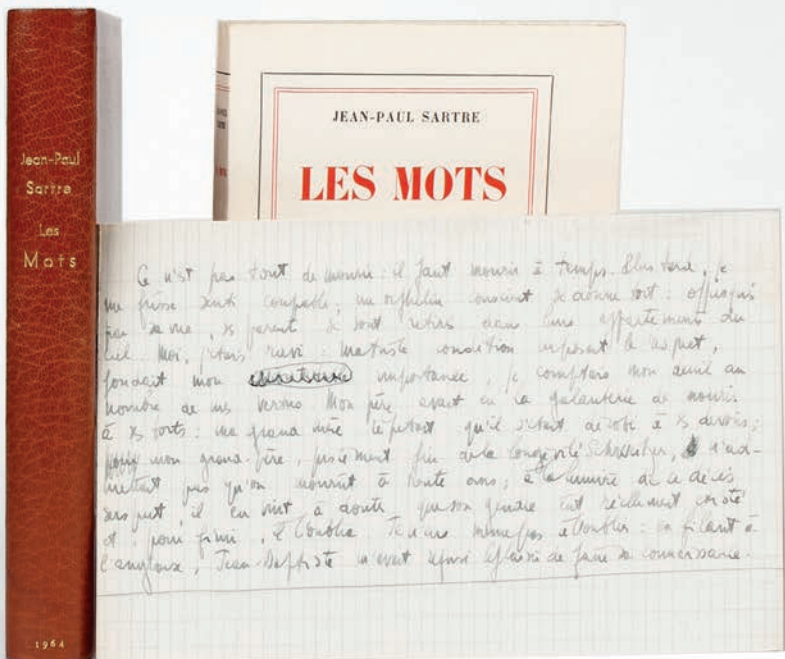 Jean-Paul
Sartre
Les
Mots
1964
JEAN-PAUL SARTRE
LES MOTS
Ce n'est pas tout de mourir : il faut mourir à temps. Plus tard, je
me fusse senti coupable ; un orphelin conscient se donne tort : offusqués
par sa vue, ses parents se sont retirés dans leurs appartements du
ciel. Moi, j'étais ravi : ma triste condition imposait le respect,
fondait mon importance ; je comptais mon deuil au
nombre de mes vertus. Mon père avait eu la galanterie de mourir
à ses torts : ma grand mère répétait qu'il s'était dérobé à ses devoirs ;
mon grand-père, justement fier de la longévité Schweitzer, n'ad-
mettait pas qu'on mourût à trente ans ; à la lumière de ce décès
suspect, il en vint à douter que son gendre eût réellement existé
et, pour finir, il l'oublia. Je n'eus même pas à l'oublier : en filant à
l'anglaise, Jean-Baptiste m'avait refusé le plaisir de faire sa connaissance.